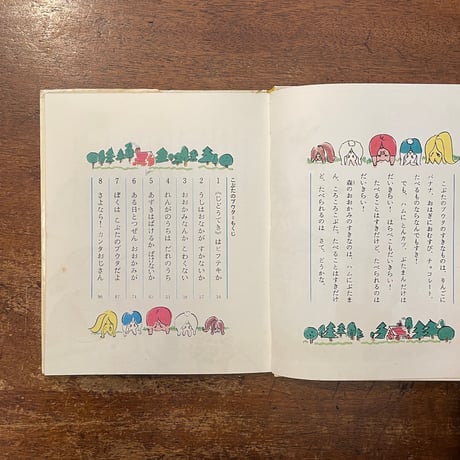 こぶたのブウタのすきなものは、りんごに
バナナ、おはぎにおむすび、チョコレート、
たべるものならなんでもすき!
でも、ハムにとんカツ、ぶたまんだけは
だいきらい! はらぺこもだいきらい!
たべることはすきだけど、たべられるのは
だいきらい!
森のおおかみのすきなのは、ハムにぶたま
ん、ころころこぶた。たべることはすきだけ
ど、たべられるのは さて、どうかな。
こぶたのブウタ・もくじ
1 《じどうてき》はビフテキか
2 うしはおなかが すかないか
3 おおかみなんか こわくない
4 れんがのうちは だれのうち
5 あずきはばけるか、ばけないか
6 ある日とつぜん おおかみが 74
7 ぼくは こぶたのブウタだよ 87
8 さよなら! カンタおじさん